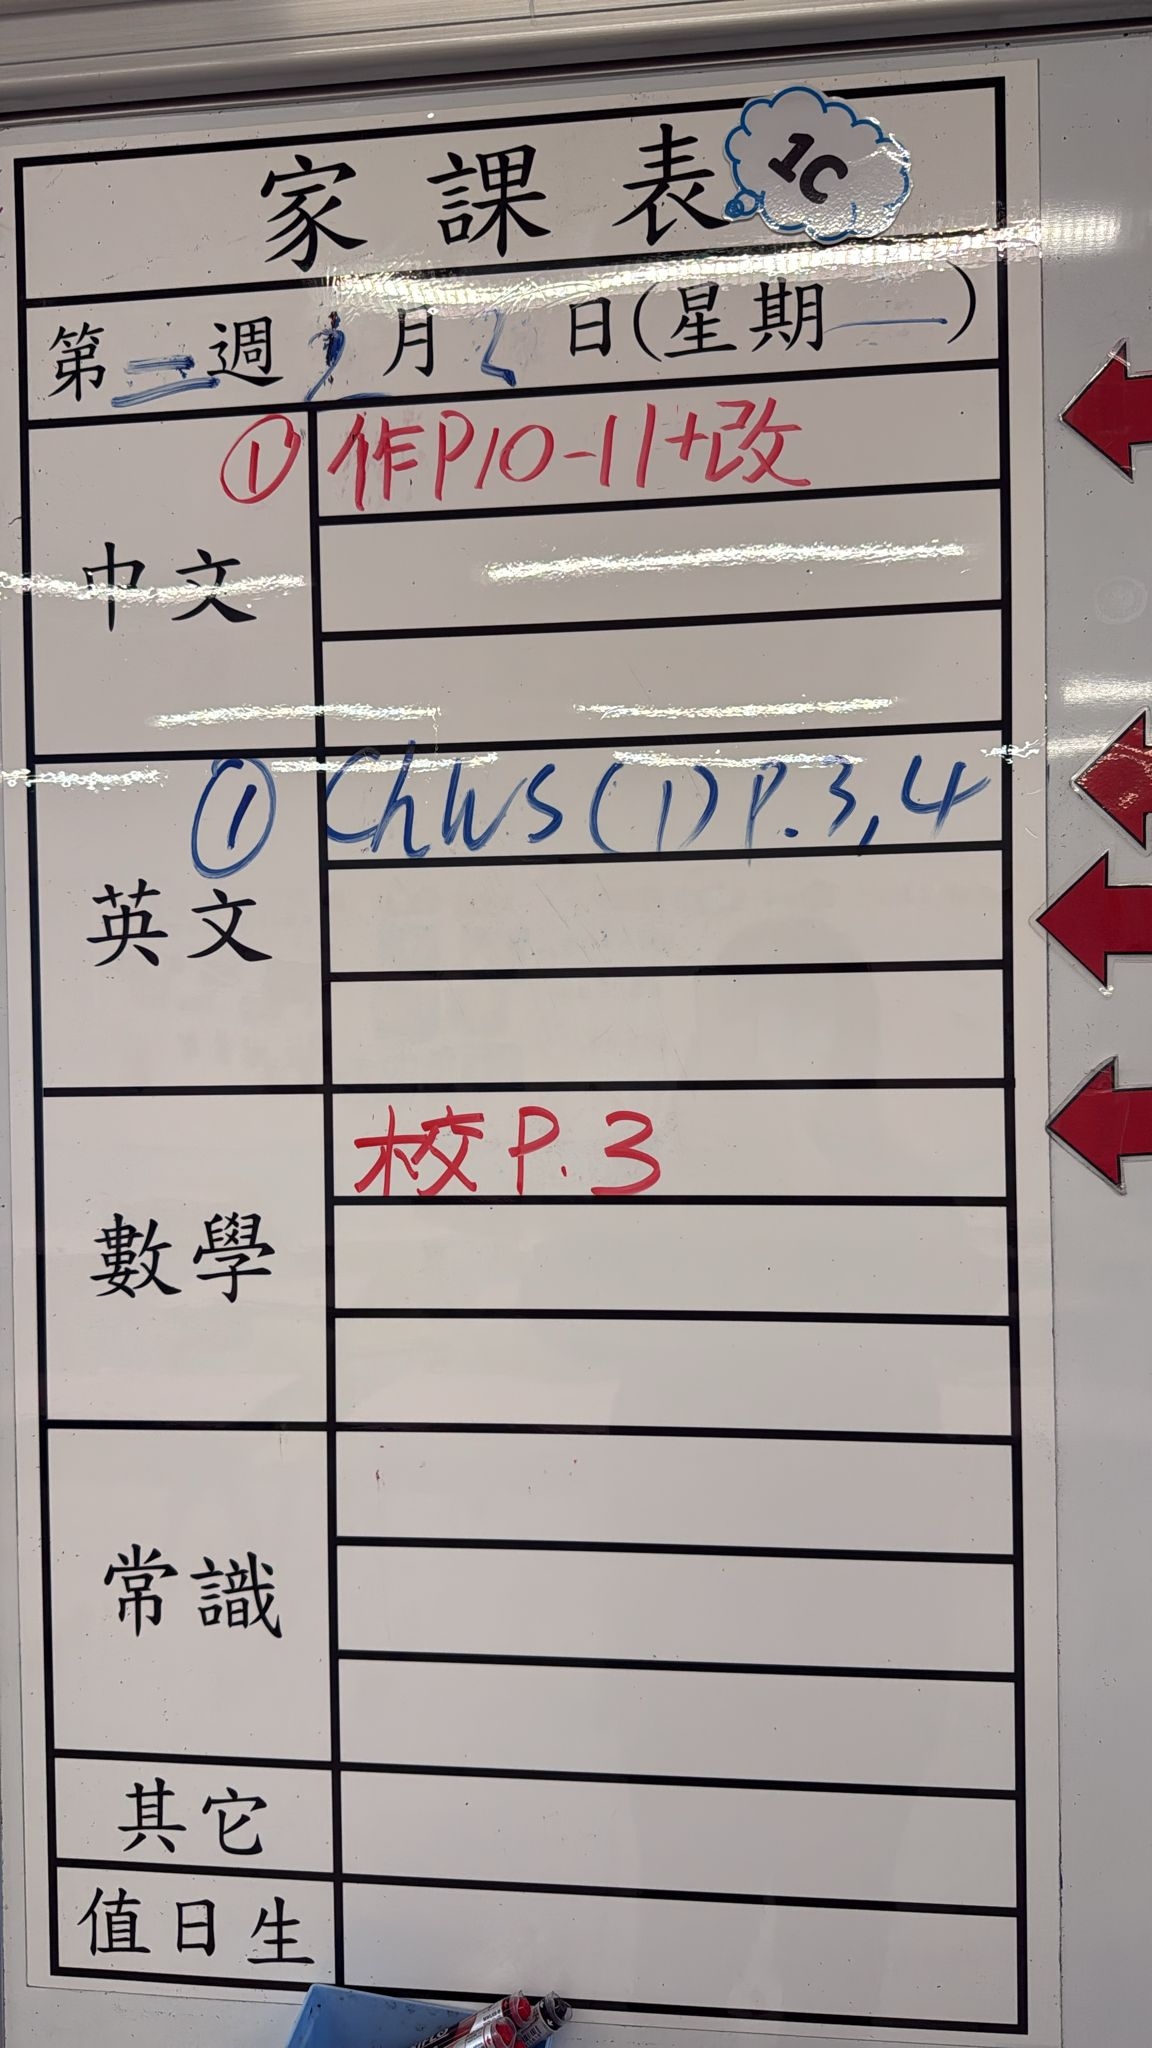 家課表 1C
第二週 月 日(星期一)
① 作P10-11+改
中文
① ChWS(1)P.3,4
英文
校P.3
數學
常識
其它
值日生